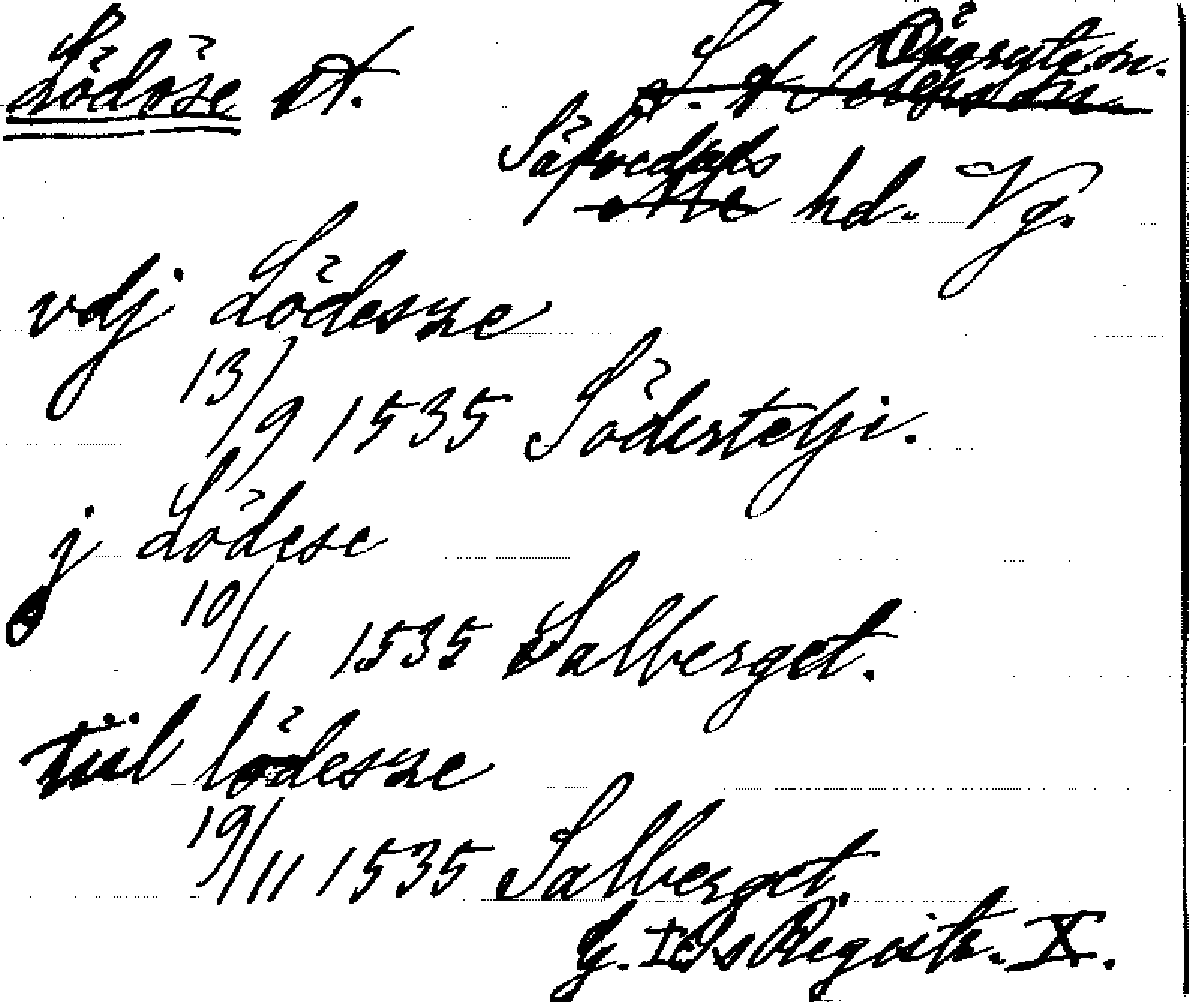 Lödöse St. Örgryte sn.
S. t Peders sn.
Säfvedals
Ale hd. Vg.
vdj Lödesze
13/9 1535 Södertelji.
j Lödese
10/11 1535 Salberget.
tiil lödesze
19/11 1535 Salberget.
G. I:s Registr. X.